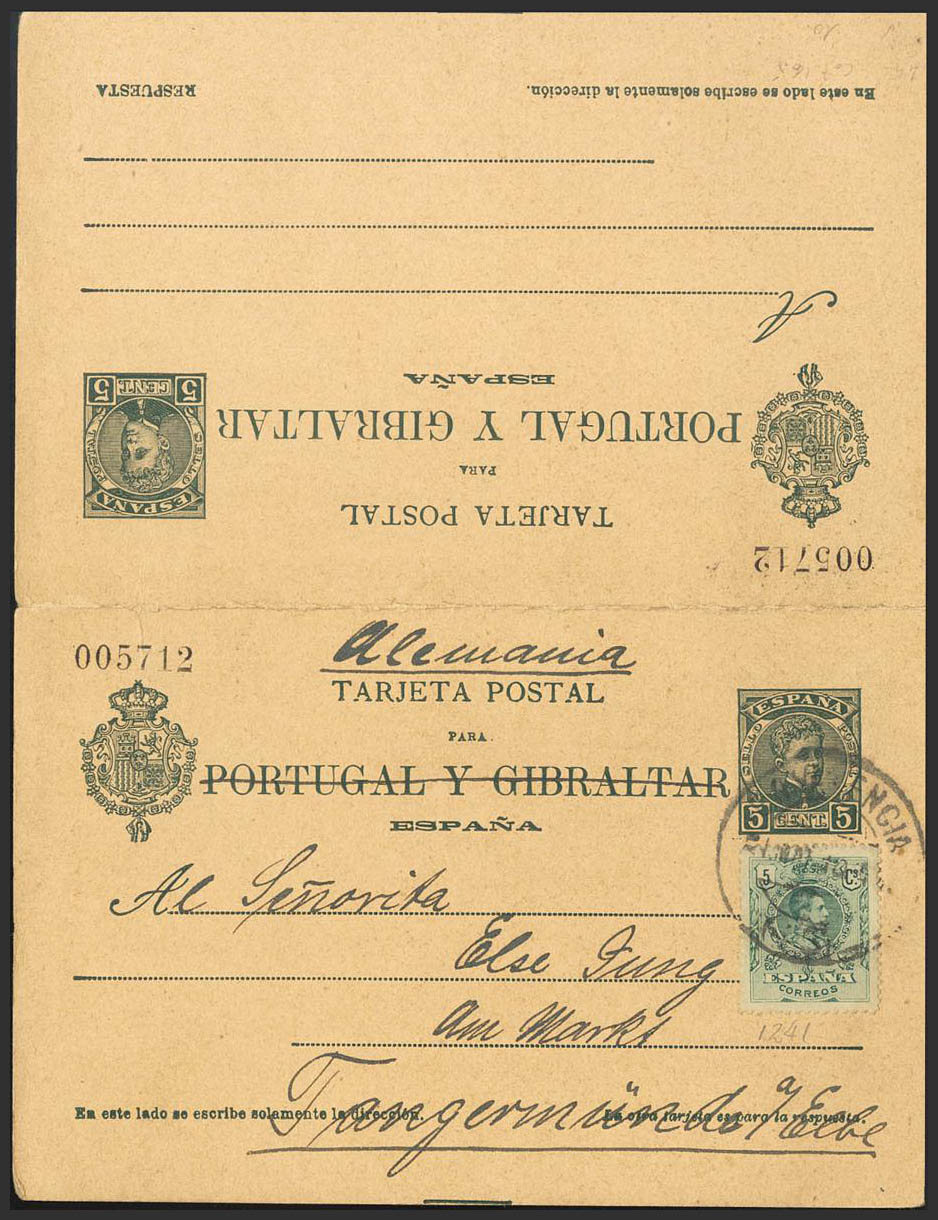 RESPUESTA
En este lado se escribe solamente la dirección.
A
ESPAÑA
PORTUGAL Y GIBRALTAR
PARA
TARJETA POSTAL
5 CENT. 5
SELLO POSTAL
ESPAÑA
005712
005712
Alemania
TARJETA POSTAL
PARA
PORTUGAL Y GIBRALTAR
ESPAÑA
ESPAÑA
SELLO POSTAL
5 CENT. 5
5 Cs
ESPAÑA
CORREOS
1241
Al Señorita
Else Jung
Am Markt
Tangermünde a/ Elbe
En este lado se escribe solamente la dirección.
La otra tarjeta es para la respuesta.